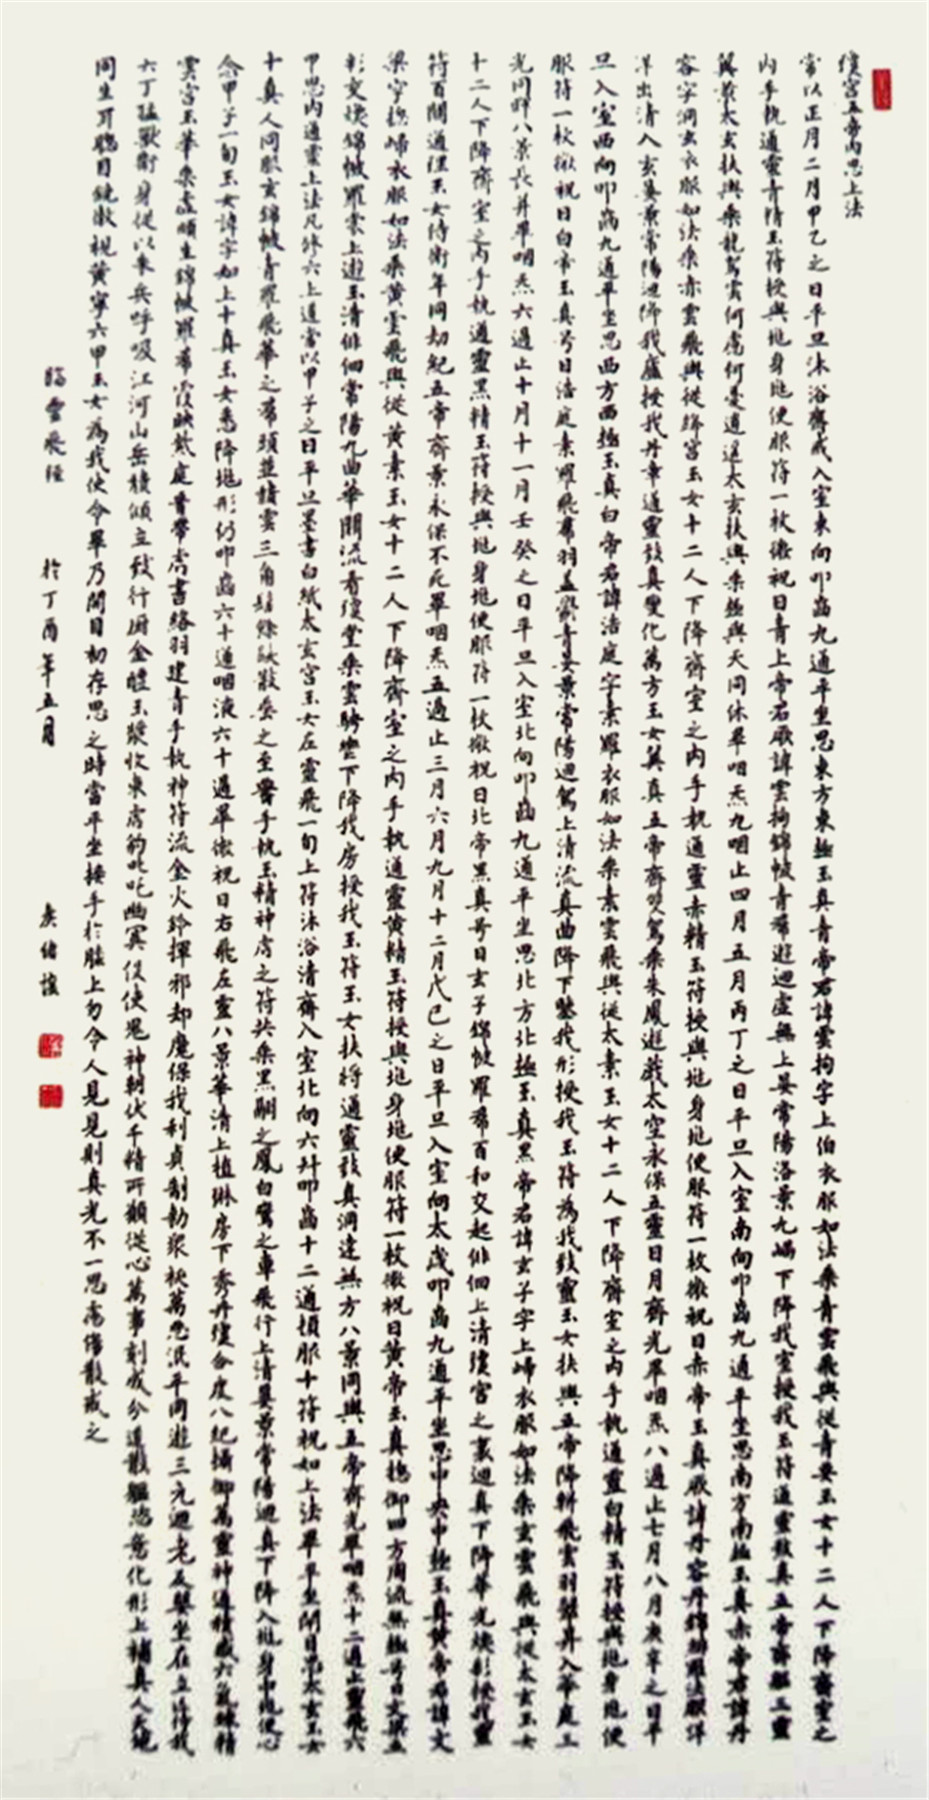 瓊宮五帝內思上法
常以正月二月甲乙之日平旦沐浴齋戒入室東向叩齒九通平坐思東方東極玉真青帝君諱雲拘字上伯衣服如法乘青雲飛輿從青要玉女十二人下降齋室之
內手執通靈青精玉符授與兆身兆便服符一枚微祝曰青上帝君厥諱雲拘錦帔青裙遊迴虛無上晏常陽洛景九嵎下降我室授我玉符通靈致真五帝齊軀三靈
翼景太玄扶輿乘龍駕雲何慮何憂逍遙太玄扶輿乘極與天同休畢咽炁九咽止四月五月丙丁之日平旦入室南向叩齒九通平坐思南方南極玉真赤帝君諱丹
容字洞玄衣服如法乘赤雲飛輿從絳宮玉女十二人下降齋室之內手執通靈赤精玉符授與兆身兆便服符一枚微祝曰赤帝玉真厥諱丹容丹錦緋羅法服洋
洋出清入玄晏景常陽迴降我廬授我丹章通靈致真變化萬方玉女翼真五帝齊雙駕乘朱鳳遊戲太空永保五靈日月齊光畢咽炁八過止七月八月庚辛之日平
旦入室西向叩齒九通平坐思西方西極玉真白帝君諱浩庭字素羅衣服如法乘素雲飛輿從太素玉女十二人下降齋室之內手執通靈白精玉符授與兆身兆便
服符一枚微祝曰白帝玉真号曰浩庭素羅飛裙羽蓋鬱青晏景常陽迴駕上清流真曲降下鑒我形授我玉符為我致靈玉女扶輿五帝降軿飛雲羽翠昇入華庭三
光同軿八景長并畢咽炁六過止十月十一月壬癸之日平旦入室北向叩齒九通平坐思北方北極玉真黑帝君諱玄子字上歸衣服如法乘玄雲飛輿從太玄玉女
十二人下降齋室之內手執通靈黑精玉符授與兆身兆便服符一枚微祝曰北帝黑真号曰玄子錦帔羅裙百和交起俳佪上清瓊宮之裏迴真下降華光煥彩授我靈
符百關通理玉女侍衛年同劫紀五帝齊景永保不死畢咽炁五過止三月六月九月十二月戊己之日平旦入室向太歲叩齒九通平坐思中央中極玉真黃帝君諱文
梁字惣歸衣服如法乘黃雲飛輿從黃素玉女十二人下降齋室之內手執通靈黃精玉符授與兆身兆便服符一枚微祝曰黃帝玉真惣御四方周流無極号曰文梁五
彩交煥錦帔羅裳上遊玉清俳佪常陽九曲華關流看瓊堂乘雲騁轡下降我房授我玉符玉女扶將通靈致真洞達無方八景同輿五帝齊光畢咽炁十二過止靈飛六
甲思內通靈上法凡修六上道常以甲子之日平旦墨書白紙太玄宮玉女左靈飛一旬上符沐浴清齋入室北向六拜叩齒十二通頓服十符祝如上法畢平坐閉目思太玄玉女
十真人同服玄錦帔青羅飛華之裙頭並頹雲三角髻餘髮散垂之至腰手執玉精神虎之符共乘黑翮之鳳白鸞之車飛行上清晏景常陽迴真下降入兆身中兆便心
念甲子一旬玉女諱字如上十真玉女悉降兆形仍叩齒六十通咽液六十過畢微祝曰右飛左靈八景華清上植琳房下秀丹瓊合度八紀攝御萬靈神通積感六氣鍊精
雲宮玉華乘虛順生錦帔羅裙霞映紫庭腰帶虎書絡羽建青手執神符流金火鈴揮邪却魔保我利貞制勅眾祅萬惡泯平同遊三元迴老反嬰坐在立亡侍我
六丁猛獸衛身從以朱兵呼吸江河山岳積傾立致行厨金醴玉漿收束虎豹叱吒幽冥役使鬼神朝伏千精所願從心萬事剋成分道散軀恣意化形上補真人天地
同生耳聰目鏡徹視黃寧六甲玉女為我使令畢乃開目初存思之時當平坐接手於膝上勿令人見見則真光不一思慮傷散戒之
臨靈飛經 於丁酉年五月